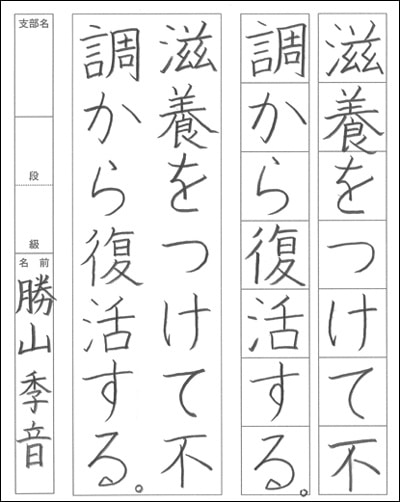 滋養をつけて不
調から復活する。
滋養をつけて不
調から復活する。
支部名
段
級
名前
勝山季音